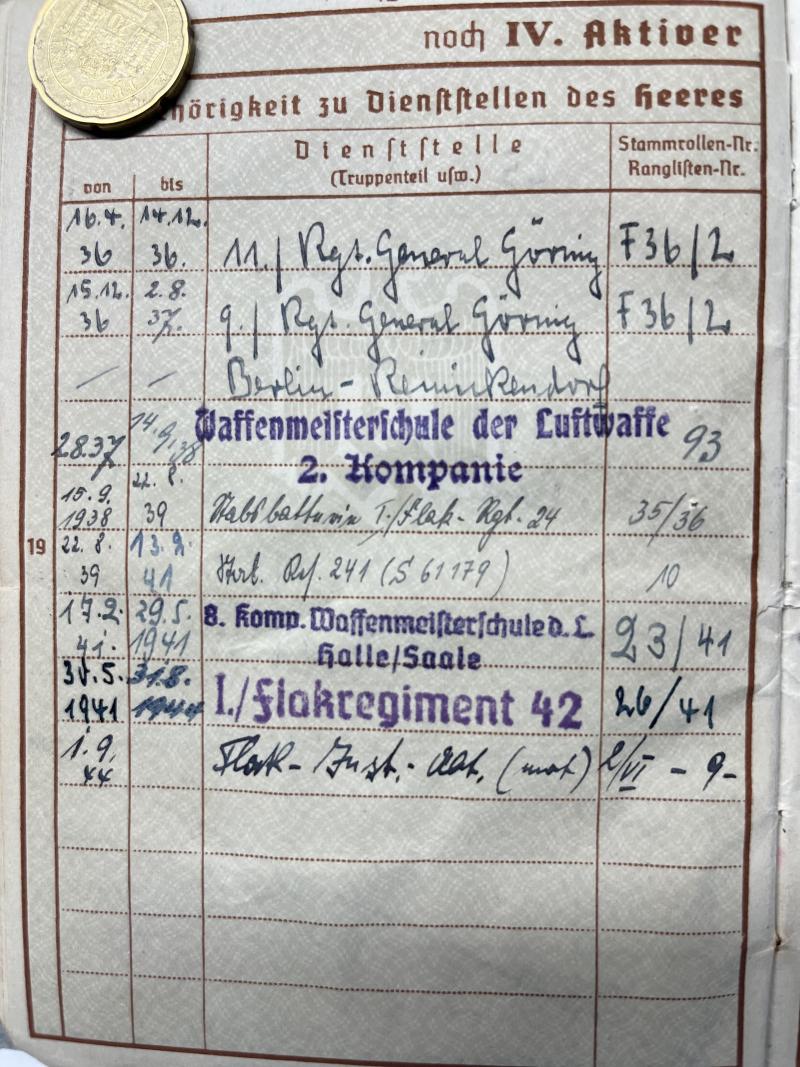 noch IV. Aktiver
hörigkeit zu Dienststellen des Heeres
von
bis
Dienststelle
(Truppenteil usw.)
Stammrollen-Nr.
Ranglisten-Nr.
16.4. 14.12.
36 36. 11./ Rgt. General Göring F 36/2
15.12. 2.8.
36 37. 9./ Rgt. General Göring F 36/2
— — Berlin-Reinickendorf
Waffenmeisterschule der Luftwaffe
2.8.37 14.9.38 93
2. Kompanie
15.9. 22.8.
1938 39 Stabsbatterie I./Flak-Rgt. 24 35/36
19
22.8. 13.2.
39 41 Res. 241 (S 61179) 10
17.2. 29.5. 8. Komp. Waffenmeisterschule d. L.
41. 1941 Halle/Saale 23/41
30.5. 31.8.
1941 1944 I./Flakregiment 42 26/41
1.9.
44 Flak-Inst.-Abt. (mot) 2/VI - 9-